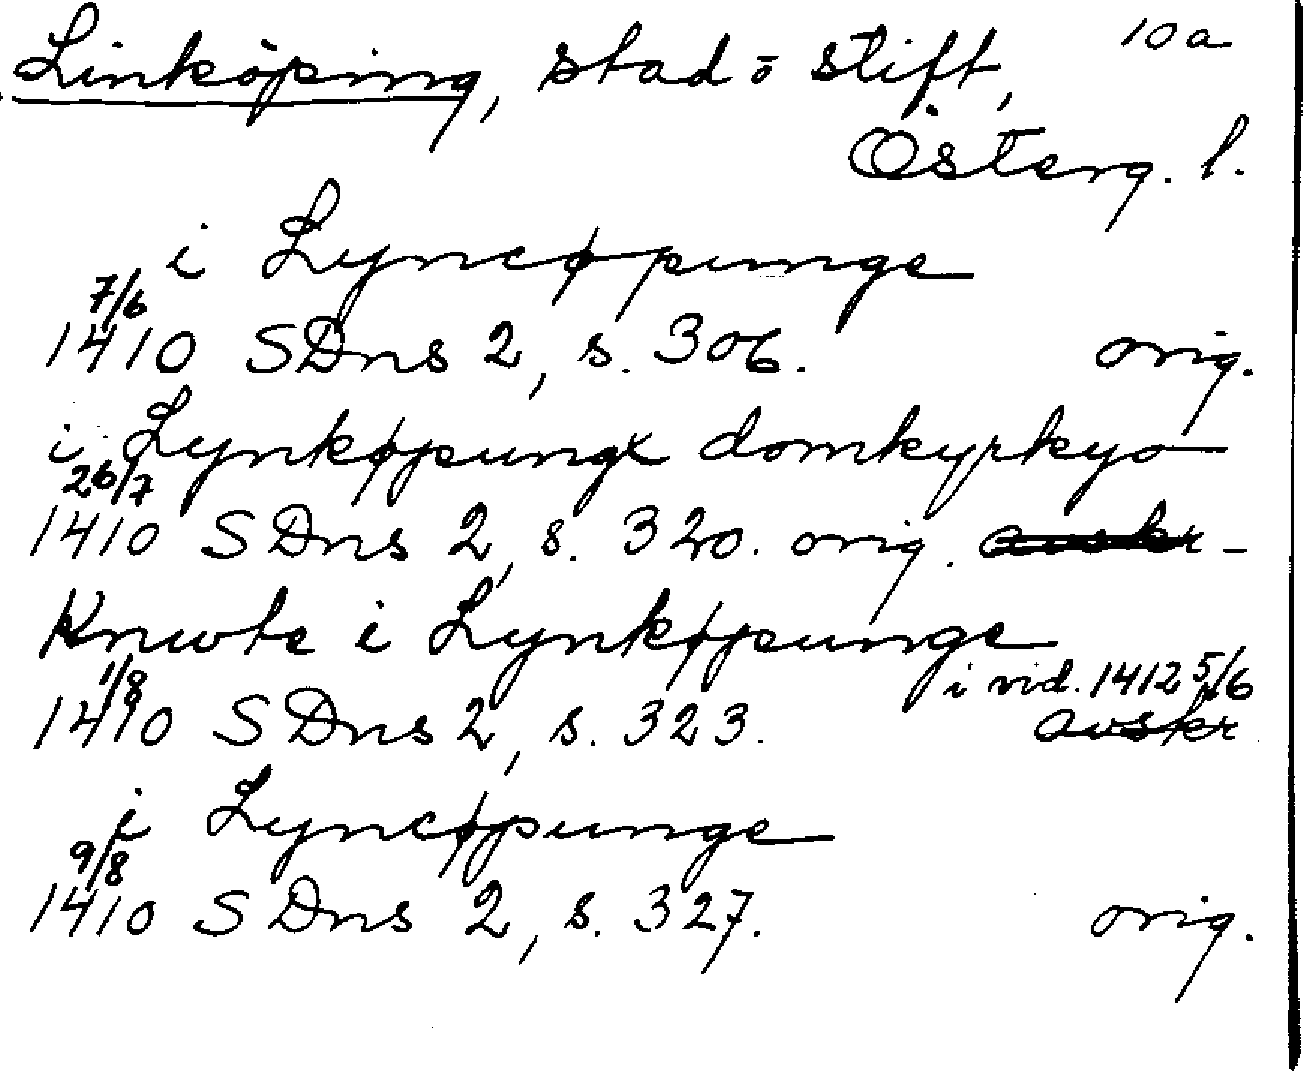 Linköping, stad o stift, 10a
Österg. l.
i Lyncøpunge
7/6
1410 SDns 2, s. 306. orig.
i Lynkøpungx domkyrkyo
26/7
1410 SDns 2, s. 320. orig. avskr -
Knwte i Lynkøpunge
1/8 i vid. 1412 5/6
1410 SDns 2, s. 323. avskr
i Lyncøpunge
9/8
1410 SDns 2, s. 327. orig.